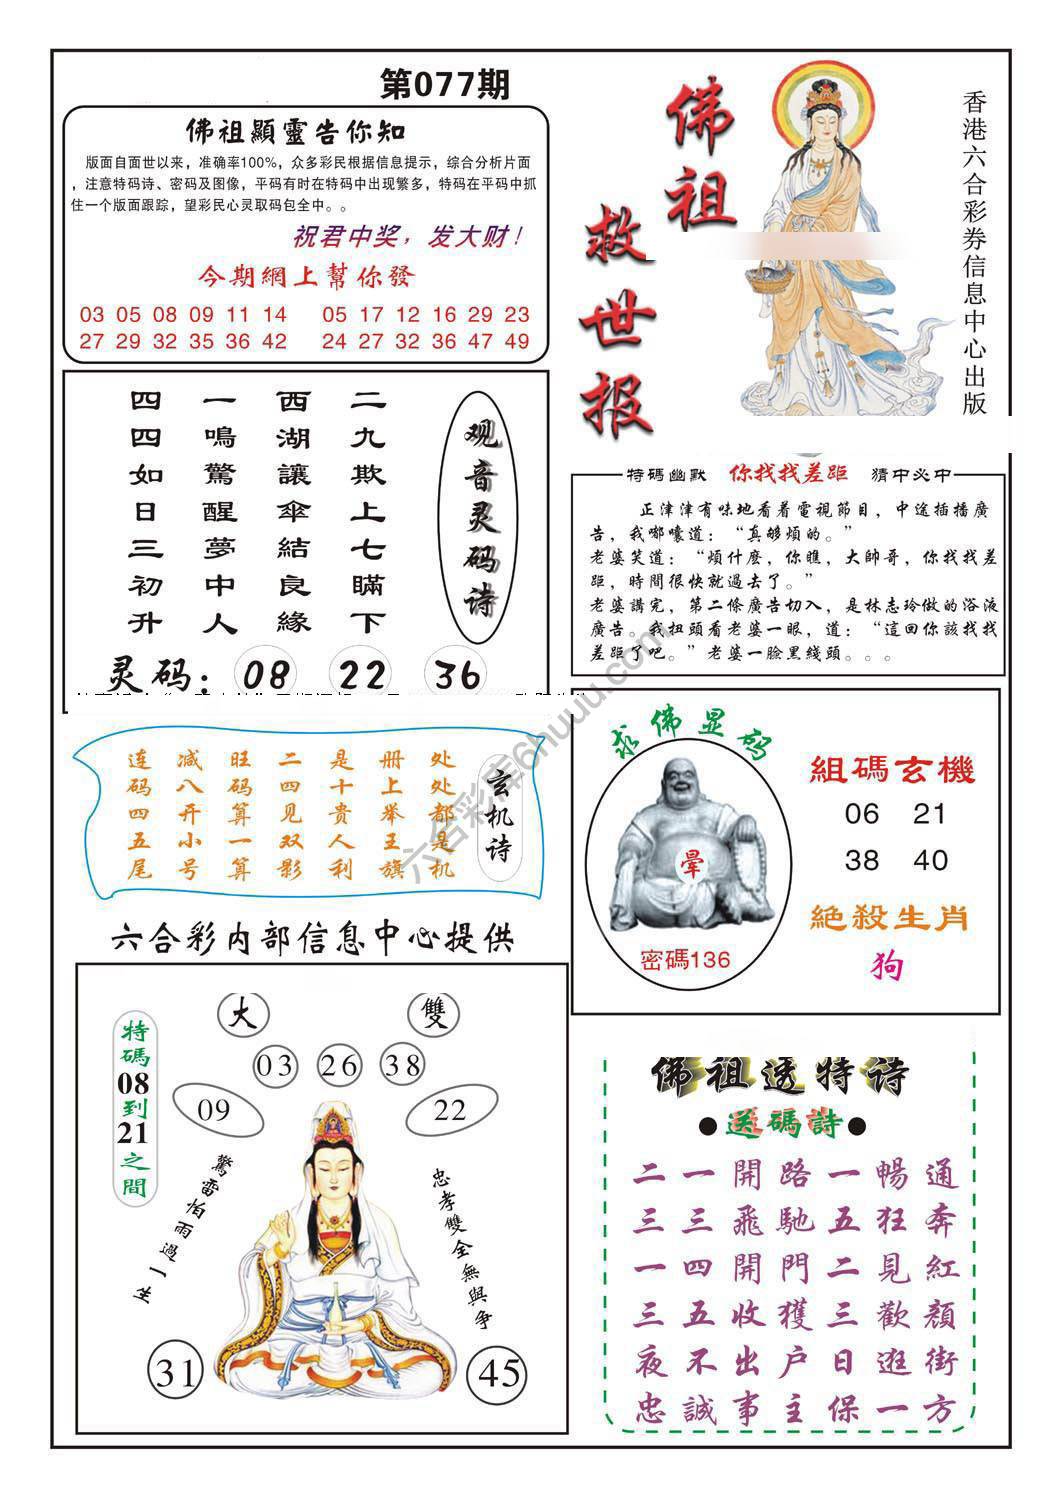 第077期
佛祖顯靈告你知
版面自面世以来，准确率100%，众多彩民根据信息提示，综合分析片面
，注意特码诗、密码及图像，平码有时在特码中出现繁多，特码在平码中抓
住一个版面跟踪，望彩民心灵取码包全中。。
祝君中奖，发大财！
今期網上幫你發
03 05 08 09 11 14  05 17 12 16 29 23
27 29 32 35 36 42  24 27 32 36 47 49
佛祖
救世报
香港六合彩券信息中心出版
观音灵码诗
二九欺上七瞞下
西湖讓傘結良緣
一鳴驚醒夢中人
四四如日三初升
灵码：08 22 36
特碼幽默 你找找差距 猜中必中
正津津有味地看着電視節目，中途插播廣
告，我嘟囔道：“真够煩的。”
老婆笑道：“煩什麽，你瞧，大帥哥，你找找差
距，時間很快就過去了。”
老婆講完，第二條廣告切入，是林志玲做的浴液
廣告。我扭頭看老婆一眼，道：“這回你該找找
差距了吧。”老婆一臉黑綫頭。。。
玄机诗
处处都是机
册上举王旗
是十贵人利
二四见双影
旺码算一算
减八开小号
连码四五尾
求佛显码
暈
密碼136
組碼玄機
06 21
38 40
絕殺生肖
狗
六合彩内部信息中心提供
大 雙
03 26 38
09 22
特碼08到21之間
驚雷怕雨過一生
忠孝雙全無與争
31 45
佛祖透特诗
●送碼詩●
二一開路一暢通
三三飛馳五狂奔
一四開門二見紅
三五收獲三歡顏
夜不出户日逛街
忠誠事主保一方
六合彩库6huuu.com